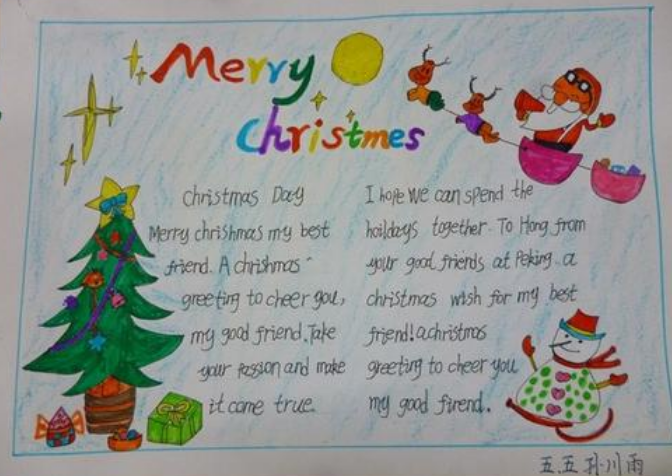 Merry
christmes
christmas Day
Merry chrishmas my best
friend. A chrishmas
greeting to cheer you,
my good friend. Take
your passion and make
it come true.
I hope we can spend the
hoildays together. To Hong from
your good friends at Peking. a
christmas wish for my best
friend! a christmas
greeting to cheer you
my good firend.
五.五 孙川雨